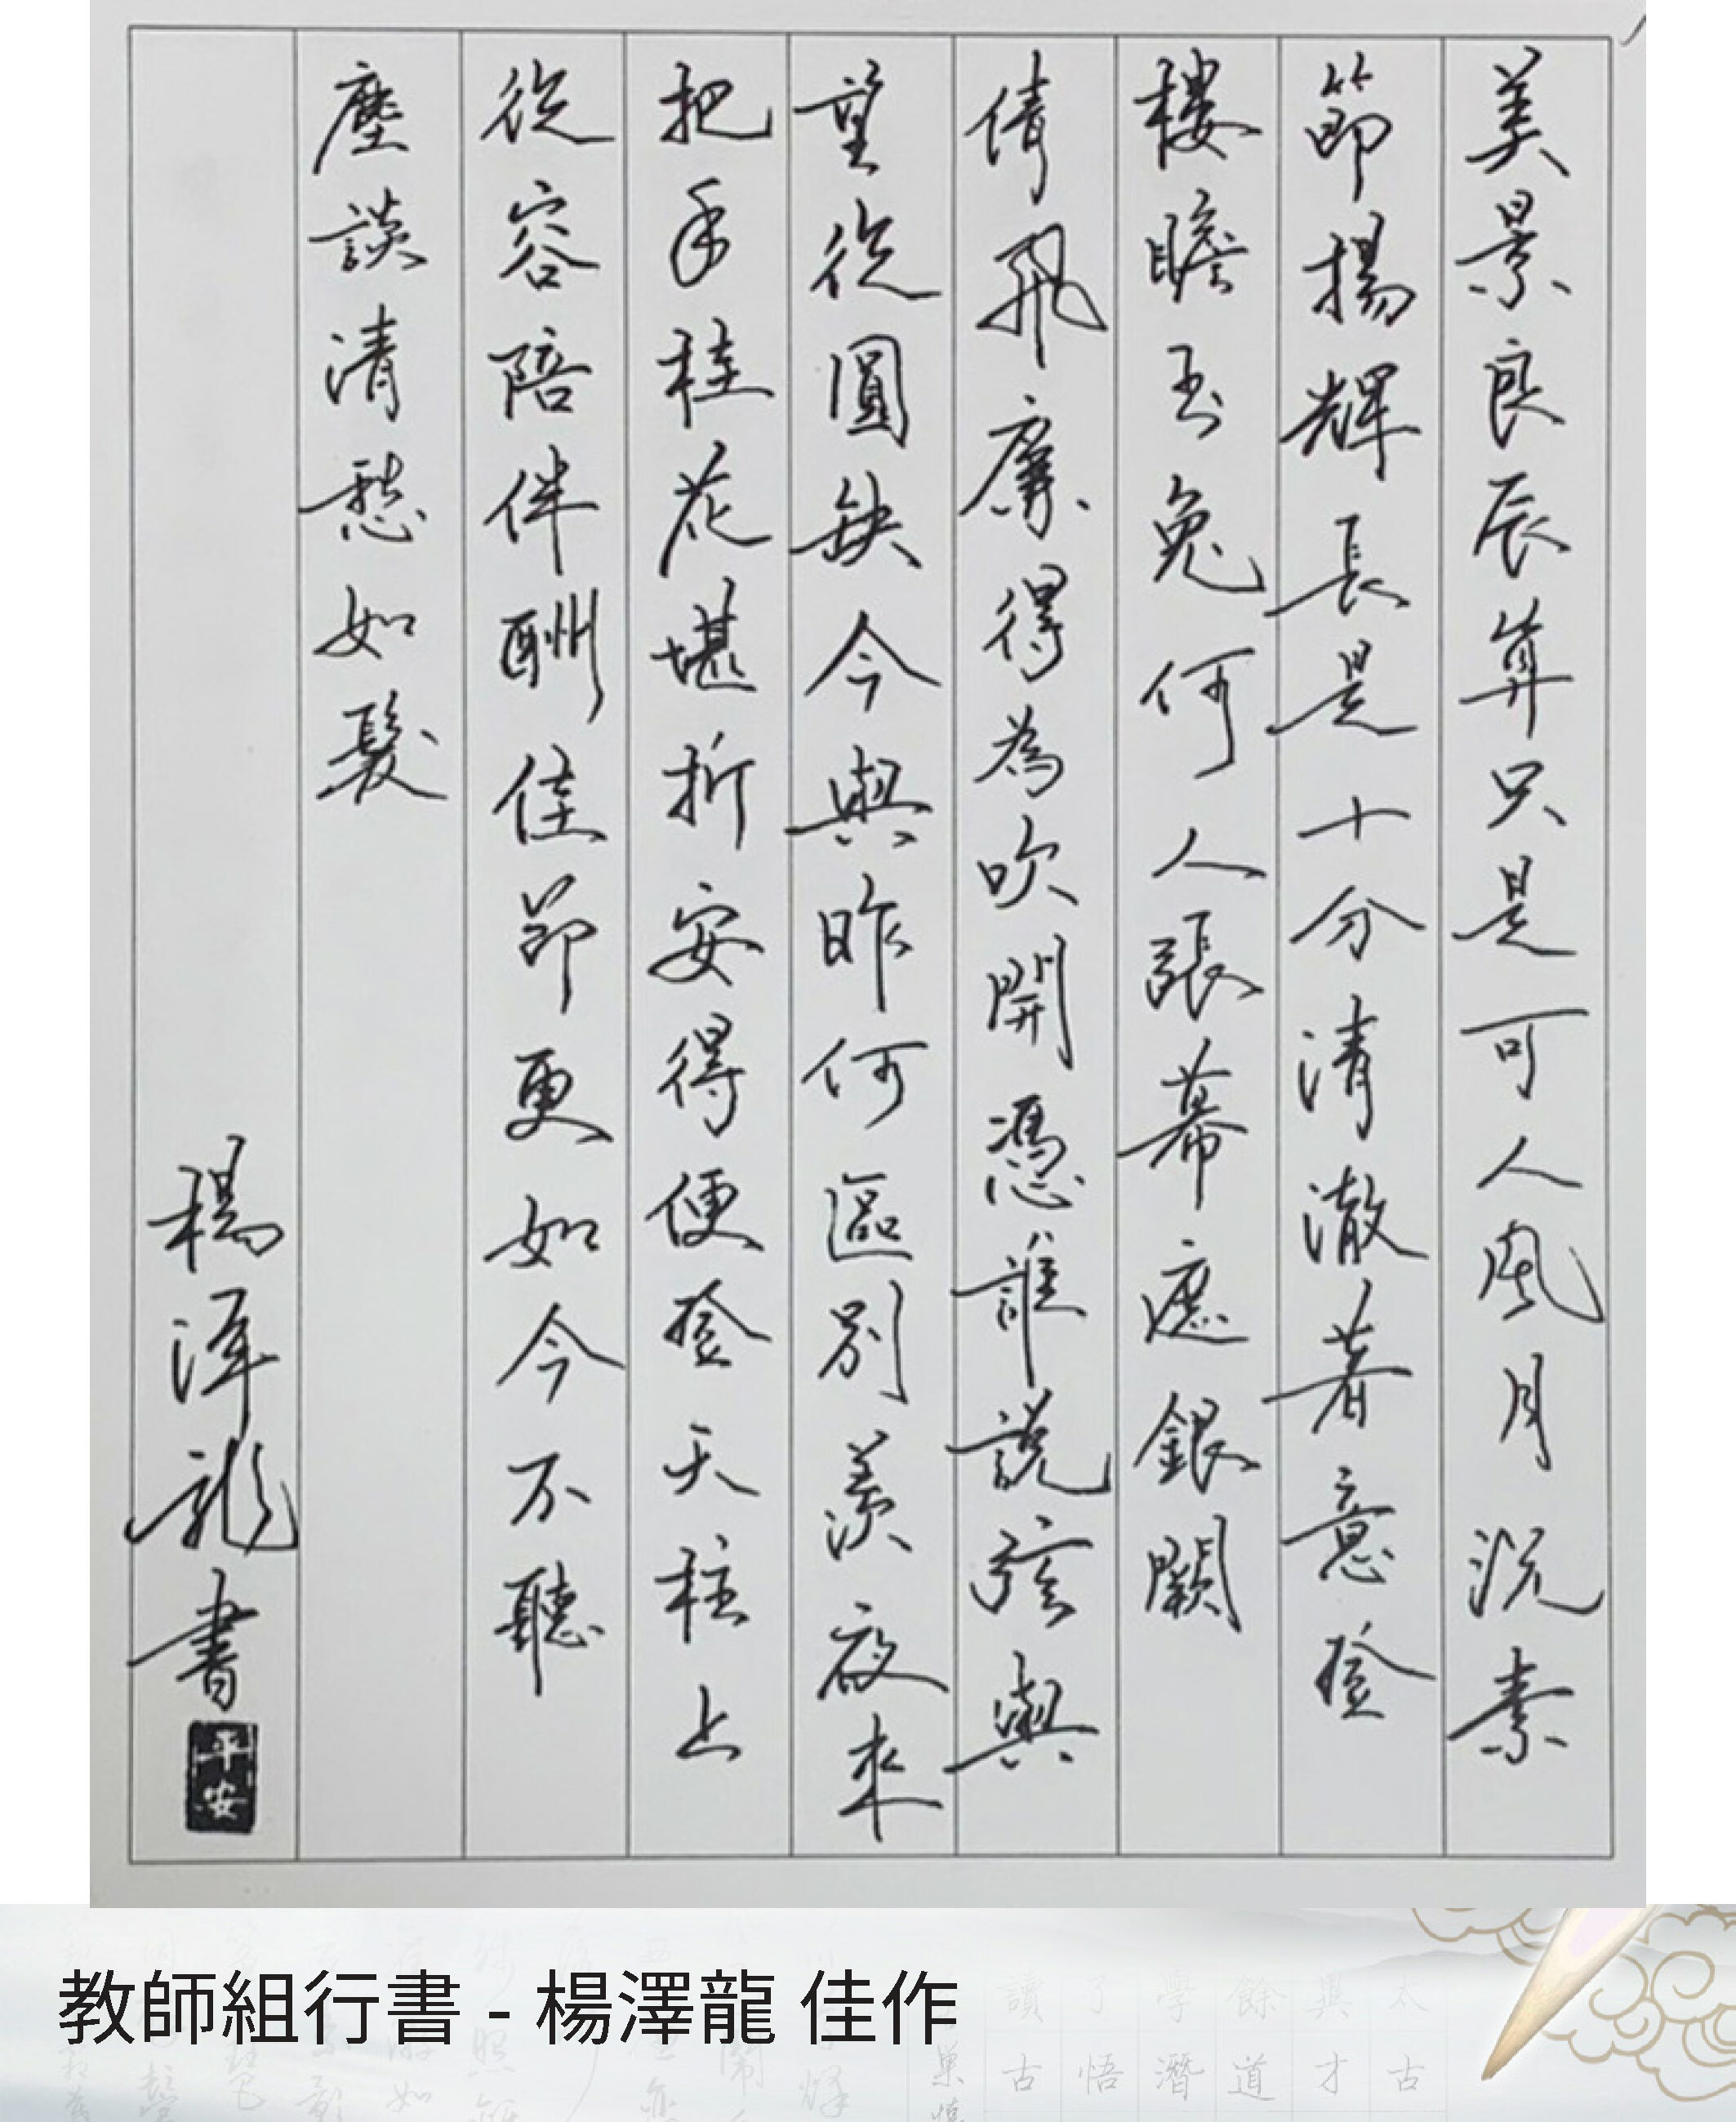 美景良辰算只是可人風月況素
節揚輝長是十分清澈著意登
樓瞻玉兔何人張幕遮銀闕
倩飛廉得為吹開憑誰說弦與
望從圓缺今與昨何區別羨夜來
把手桂花堪折安得便登天柱上
從容陪伴酬佳節更如今不聽
麈談清愁如髮
楊澤龍書
平安
教師組行書 - 楊澤龍 佳作